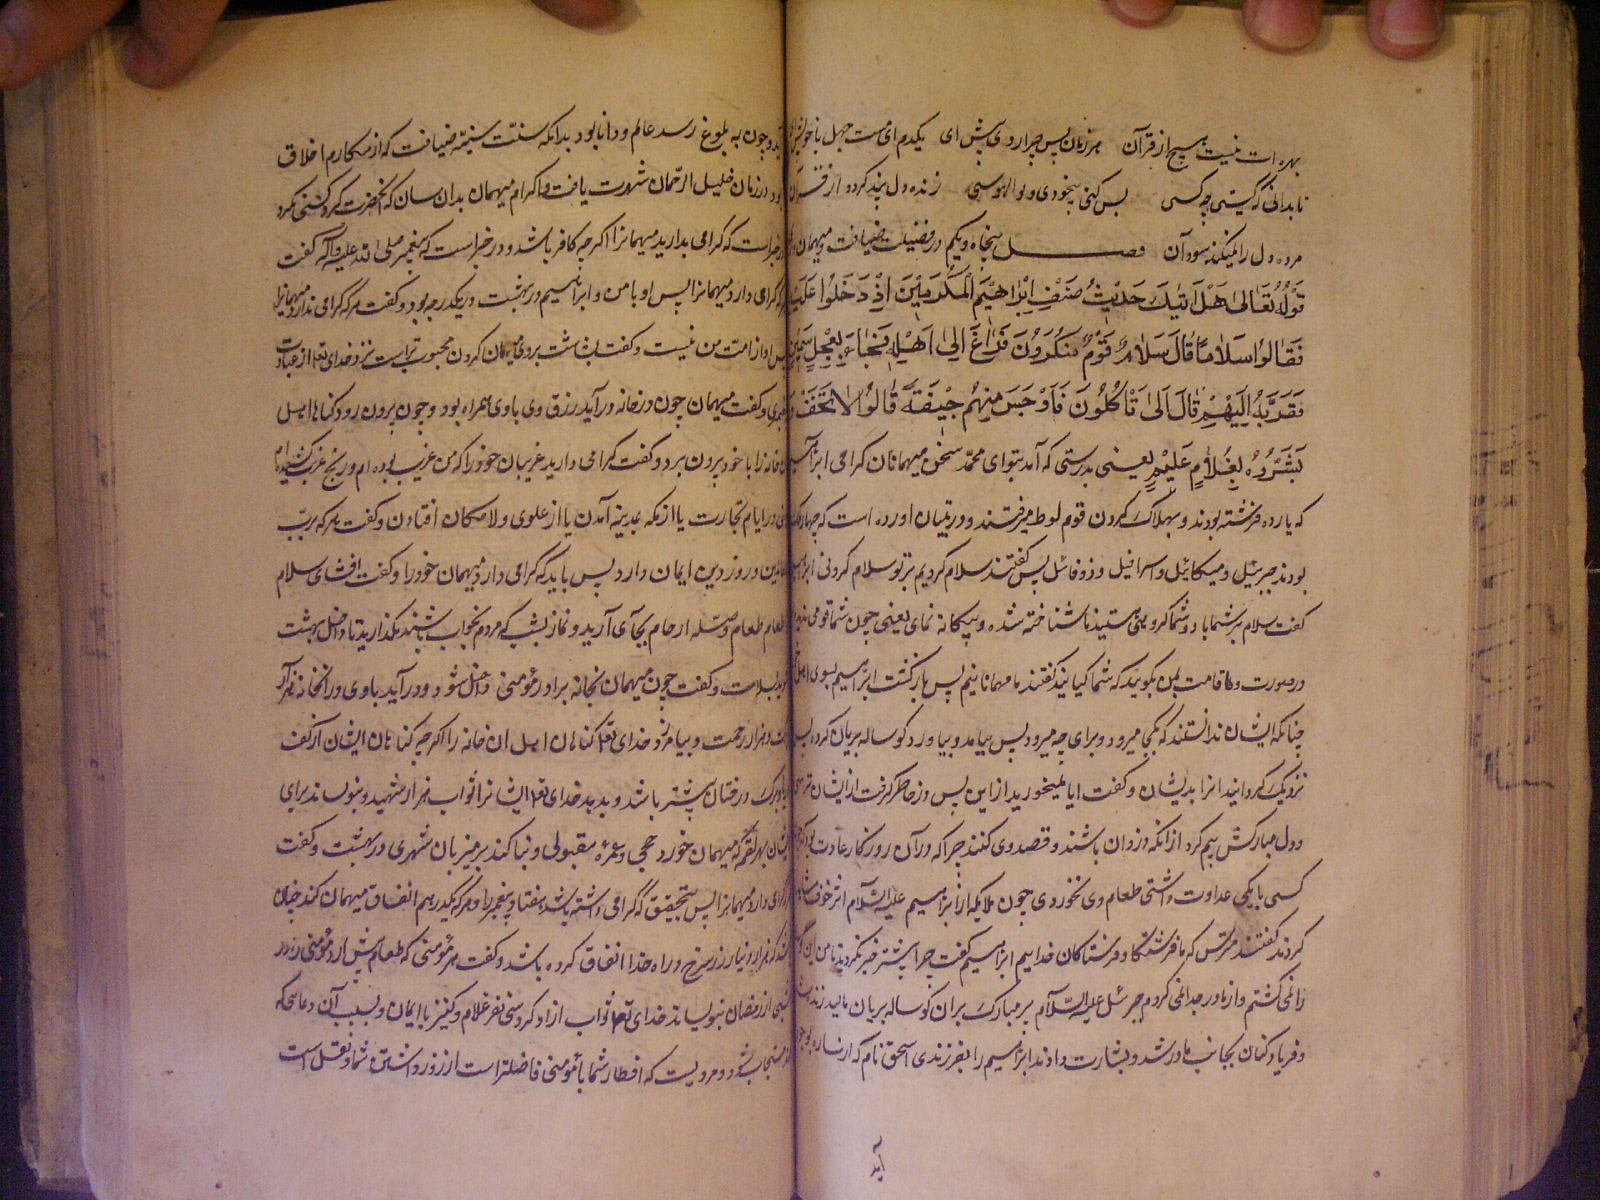 بهره ات نیست هیچ از قرآن هر زمان پس چرا روی پیش ای یکدم ای مست جهل با خود
تا بدانی که کیستی چه کسی بس کنی بیخودی و بوالهوسی زنده دل پند گیرد از قرآن
مرده دل را نمیکند سود آن فصل پنجاه و یکم در فضیلت ضیافت و میهمان
قوله تعالی هل اتیک حدیث ضیف ابراهیم المکرمین اذ دخلوا علیه
فقالوا سلاما قال سلام قوم منکرون فراغ الی اهله فجاء بعجل سمین
فقربه الیهم قال الا تاکلون فاوجس منهم خیفة قالوا لا تخف
بشروه بغلام علیم یعنی بدرستی که آمد بتو ای محمد سخن میهمانان کرامی ابراهیم
که یازده فرشته بودند و بهلاک کردن قوم لوط میرفتند و در تبیان اورده است که چهار ملک
بودند جبرئیل و میکائیل و اسرافیل و دوفائل پس کفتند سلام کردیم بر تو سلام کردنی ابراهیم
کفت سلام بر شما باد و شما کروهی هستید ناشناخته شده و بیکانه نمای یعنی چون شما قومی ندیدم
در صورت و قامت بمن بکوئید که شما کیانید کفتند ما مهمانانیم پس بازکشت ابراهیم بسوی اهل
چنانکه ایشان ندانستند که بکجا میرود و برای چه میرود پس بیامد و بیاورد کوساله بریان کرده پس
نزدیک کردانید انرا بدیشان و کفت ایا نمیخورید از این پس در خاطر کرفت از ایشان ترسی
و دل مبارکش بیم کرد از انکه دزدان باشند و قصد وی کنند چرا که در آن روزکار عادت بود که
کسی با یکی عداوت داشتی طعام وی نخوردی چون ملایکه از ابراهیم علیه السلام اثر خوف
کردند کفتند مترس که ما فرشتکان و فرستادکان خداییم ابراهیم کفت چرا پیشتر خبر نکردید تا من این
زانمی کشتم و از مادر جدا نمی کردم جبرئیل علیه السلام پر مبارک بر ان کوساله بریان مالید زنده
و فریاد کنان بجانب مادر شد و بشارت دادند ابراهیم را بفرزندی اسحق نام که از ساره بوجود
آید
آید و چون به بلوغ رسد عالم و دانا بود بدانکه سنت سنیه ضیافت که از مکارم اخلاق
بود در زمان خلیل الرحمان شهرت یافت و اکرام میهمان بدان سان که انحضرت کرد کسی نکرد
در خبر است که کرامی بدارید میهمانرا اکرچه کافر باشد و در خبر است که پیغمبر صلی الله علیه و آله کفت
هر که کرامی دارد میهمانرا پس او با من و ابراهیم در بهشت در یکدرجه بود و کفت هر که کرامی ندارد میهمانرا
پس او از امت من نیست و کفت بشاشت بروی میهمان کردن محبوب تر است نزد خدای تعالی از عبادت
و کفت میهمان چون در خانه در آید رزق وی با وی همراه بود و چون برون رود کناه اهل
خانه را با خود بیرون برد و کفت کرامی دارید غریبان خود را که من غریب بوده ام و رنج غربت کشیده ام
در ایام تجارت یا از مکه بمدینه آمدن یا از علوی و لامکان افتادن و کفت هر که برب
العالمین و روز دین ایمان دارد پس باید که کرامی دارد میهمان خود را و کفت افشای سلام
و اطعام طعام و صله ارحام بجای آرید و نماز بشب که مردم بخواب باشند بکذارید تا داخل بهشت
بسلامت و کفت چون میهمان بخانه برادر مؤمنی داخل شود در آید با وی در انخانه هزار
برکت و هزار رحمت و بیامرزد خدای تعالی کناهان اهل ان خانه را اکرچه کناهان ایشان از کف
دریا و برک درختان بیشتر باشد و بدهد خدای تعالی ایشانرا ثواب هزار شهید و بنویساند برای
ایشان بهر لقمه که میهمان خورد حجی و عمره مقبولی و بنا کند بهر میزبان شهری در بهشت و کفت
هر که کرامی دارد میهمانرا پس بتحقیق که کرامی داشته باشد هفتاد پیغمبر را و هر که یکدرهم انفاق میهمان کند چنان
باشد که هزار دینار زر سرخ در راه خدا انفاق کرده باشد و کفت هر مؤمنی که طعام پیش ارد مؤمنی را در
شبی از رمضان بنویساند خدای تعالی ثواب ازاد کردن سی نفر غلام و کنیز با ایمان و بسبب آن دعا
مستجاب شود و مرویست که افطار شما با مؤمنی فاضلتر است از روزه داشتن شما و نقل است